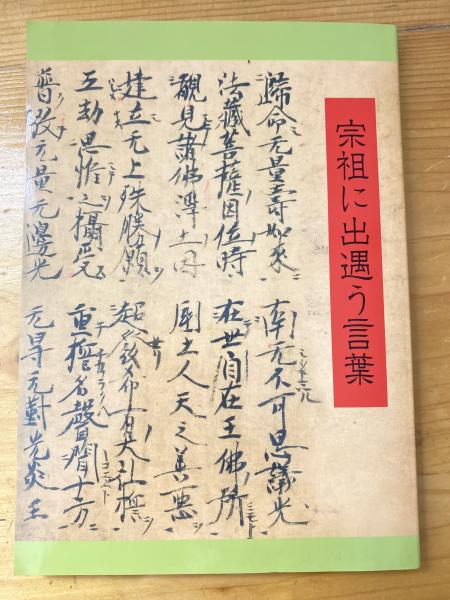 宗祖に出遇う言葉
歸命无量壽如來 南无不可思議光
法藏菩薩因位時 在世自在王佛所
覩見諸佛淨土因 國土人天之善惡
建立无上殊勝願 超發希有大弘誓
五劫思惟之攝受 重誓名聲聞十方
普放无量无邊光 无㝵无對光炎王